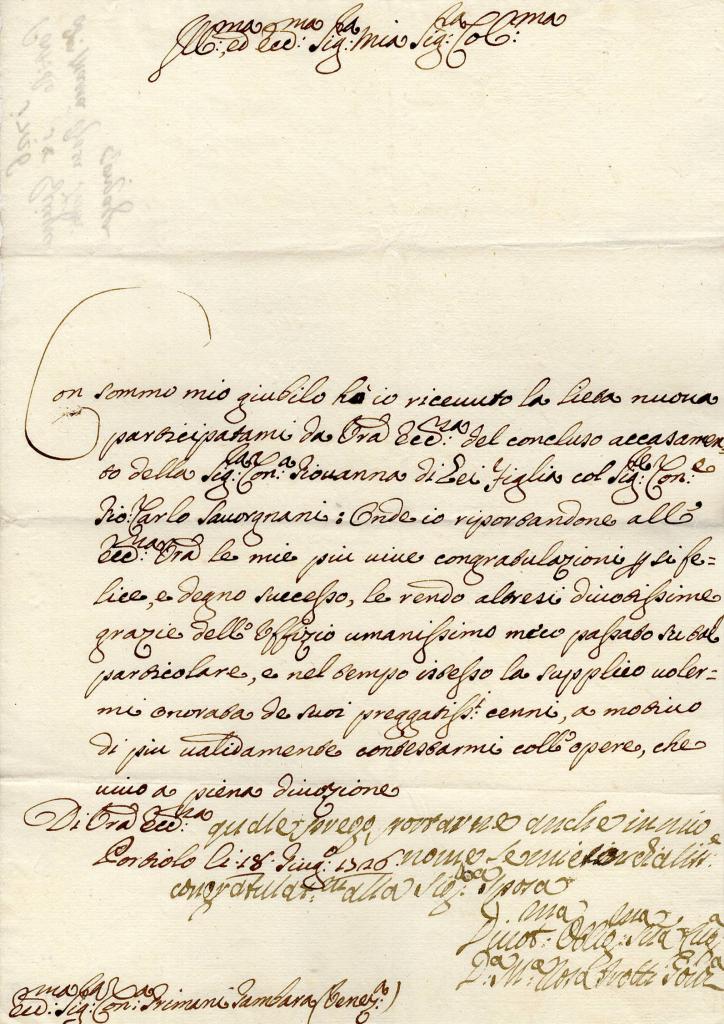 Ill:ma ed Ecc:ma Sig:ra mia Sig:ra Col:ma
Con sommo mio giubilo hò io ricevuto la lieta nuova
participatami da Vra Ecc:za del concluso accasamen-
to della Sig:ra Con:a Giovanna di Lei Figlia col Sig:re Con:e
Gio: Carlo Savorgnani: Onde io riportandone all'
Ecc:za Vra le mie più vive congratulazioni p si fe-
lice, e degno successo, le rendo altresi divotissime
grazie dell'Offizio umanissimo meco passato su tal
particolare, e nel tempo istesso la supplico voler-
mi onorata de suoi preggatiss:i cenni, a motivo
di più validamente contestarmi coll'opere, che
vivo a piena divozione
Di Vra Ecc:za quale prego portarne anche in mio
Portiolo li 18 Giug:o 1726 nome le mie cordialis:e
congratulat:ni alla Sig:ra Sposa
Divot:ma Obblig:ma
Ecc:ma Sig:ra Con:a Grimani Gambara (Venez:a)